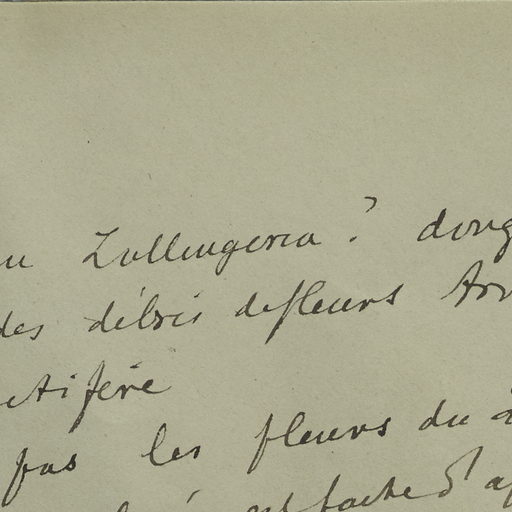 Zollingeria? dong
des débris de fleurs Arr
ctifère
pas les fleurs du
est faite d'a